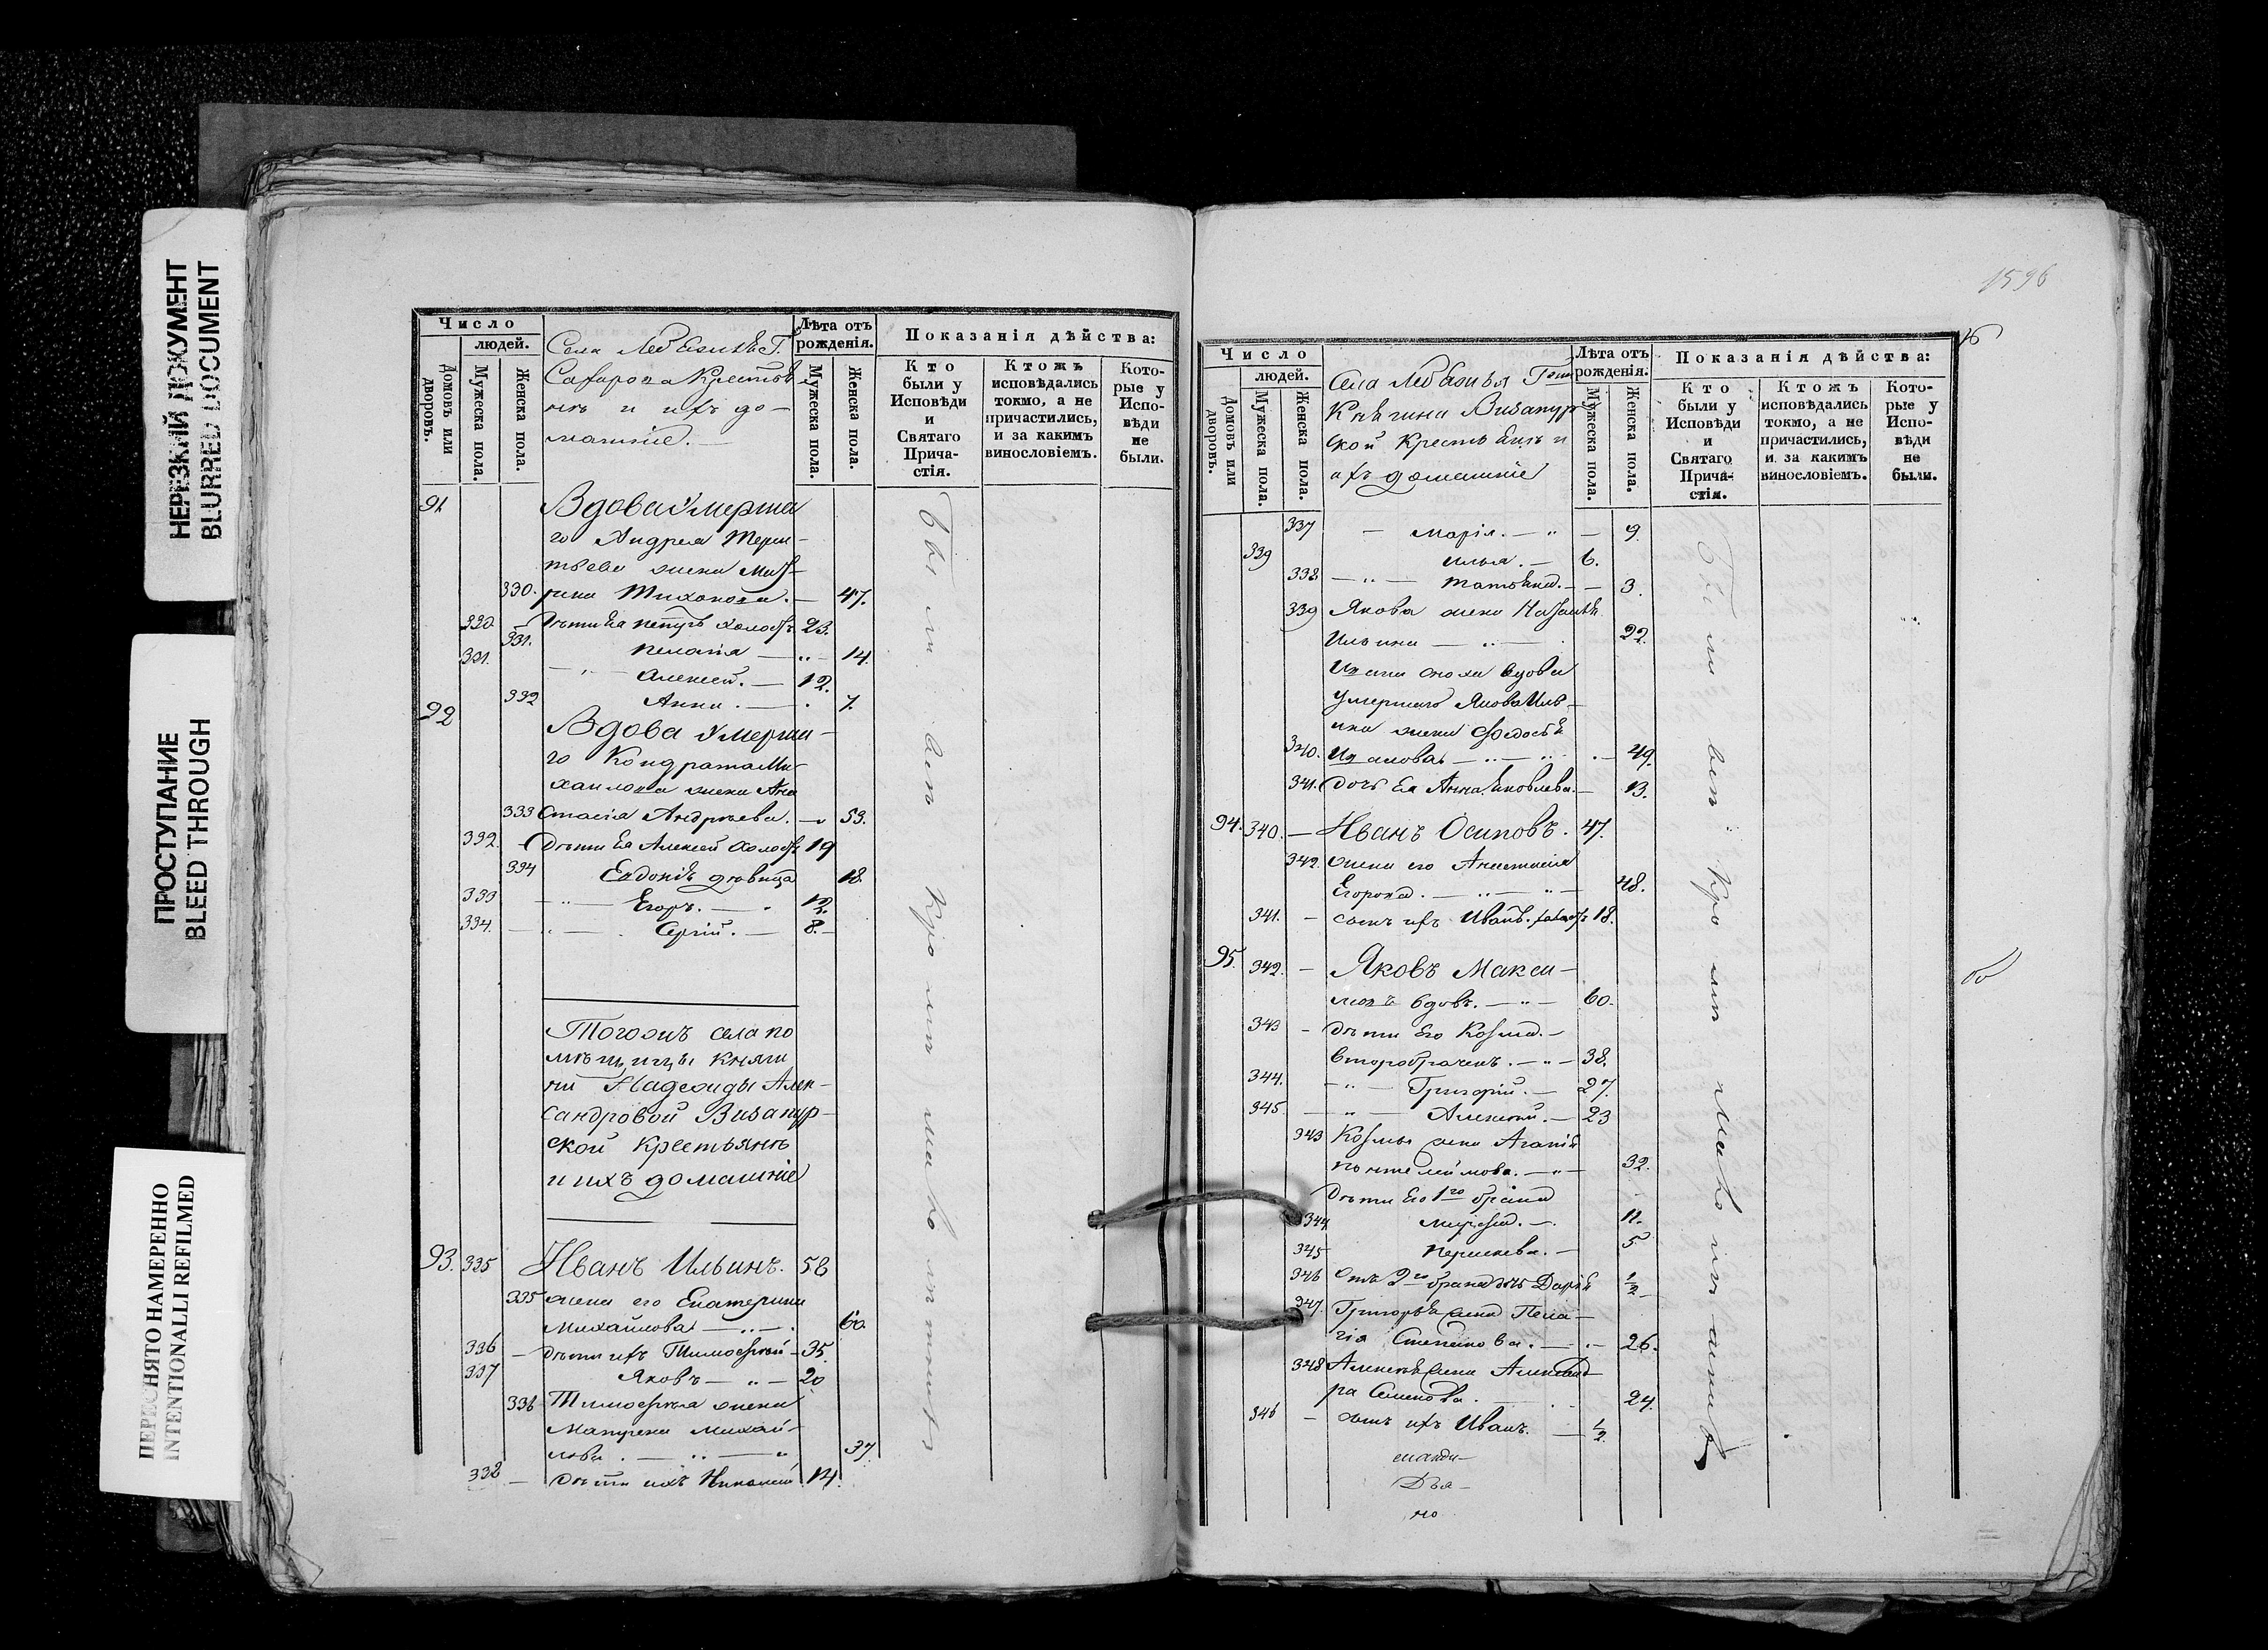 НЕРЕЗКИЙ ДОКУМЕНТ
BLURRED DOCUMENT
ПРОСТУПАНИЕ
BLEED THROUGH
ПЕРЕСНЯТО НАМЕРЕННО
INTENTIONALLI REFILMED
Число
людей.
Домовъ или дворовъ.
Мужеска пола.
Женска пола.
Села
Сафарова Крестья
не и ихъ до-
машніе.
Лѣта отъ рожденія.
Мужеска пола.
Женска пола.
Показанія дѣйства:
Кто были у Исповѣди и Святаго Причастія.
Ктожъ исповѣдались токмо, а не причастились, и за какимъ винословіемъ.
Которые у Исповѣди не были.
91 Вдова Умерша
го Андрея Терен-
тьева жена
330. Тихонова. — 47.
320. Дѣти Ея Петръ холостъ 23.
331. Пелагія — 14.
331. Алексей. — 12.
332 Анна. — 7.
92 Вдова Умерша-
го Кондрата Ми-
хаилова жена Ана
333 стасія Андреева. — 53.
332. Дѣти Ея Алексей Холостъ 19
334 Евдокія дѣвица 18.
333 Егоръ. — 12.
334. Сергій. — 8.
Тогожъ села по
мѣщицы Княги
ни Надежды Алек-
сандровой Визапур-
ской Крестьяне
и ихъ домашніе
93. 335 Иванъ Ильинъ. 58
335 жена его Екатерина
Михайлова — 60.
336 — дѣти ихъ Тимофей — 35.
337 Яковъ — 20
336 Тимофея жена
Матрена Михай-
лова. — 37
338 — Дѣти ихъ Николай 14.
1596
Число
людей.
Домовъ или дворовъ.
Мужеска пола.
Женска пола.
Села
Княгини Визапур
ской Крестьяне и
ихъ домашніе
Лѣта отъ рожденія.
Мужеска пола.
Женска пола.
Показанія дѣйства:
Кто были у Исповѣди и Святаго Причастія.
Ктожъ исповѣдались токмо, а не причастились, и за какимъ винословіемъ.
Которые у Исповѣди не были.
337 — Марія. — 9.
339 Илья. — 6.
338 Татьяна. — 3.
339 Якова жена
Ильина — 22.
вдова
умершаго Якова Иль-
ина жена Федосья
340. — 49.
341. Дочь Ея Анна Яковлева. — 13.
94. 340. — Иванъ Осиповъ. 47.
342. жена его Анастасія
Егорова. — 48.
341. — сынъ ихъ Иванъ. холостъ 18.
95. 342. — Яковъ Макси-
мовъ вдовъ. — 60.
343 — Дѣти Его Козма. —
второбраченъ. — 38.
344. Григорій. — 27.
345 Алексей. — 23
343 Козмы жена Агапія
Пантелеймова. — 32.
Дѣти Его 1го брака
344 — 11.
345 — 5
346 Отъ 2го брака дочь Дарія ½
347. Григорья жена Пела-
гія Степанова. — 26.
348 Алексея жена Александ
ра Семенова. 24.
346 — сынъ ихъ Иванъ. — ½